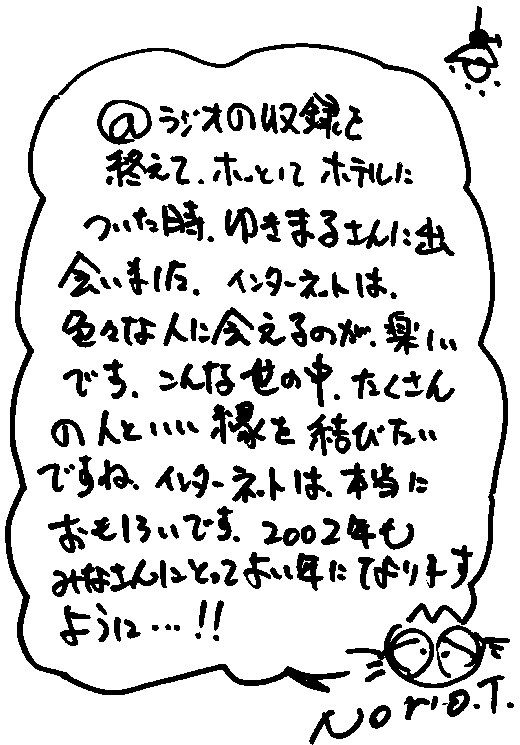 @ラジオの収録を
終えて、ホッとして ホテルに
ついた時、ゆきまるさんに出
会いました。インターネットは、
色々な人に会えるのが、楽しい
です。こんな世の中、たくさん
の人といい縁を結びたい
ですね。インターネットは、本当に
おもしろいです。2002年も
みなさんにとってよい年になります
ように…!!
Nori.o.T.